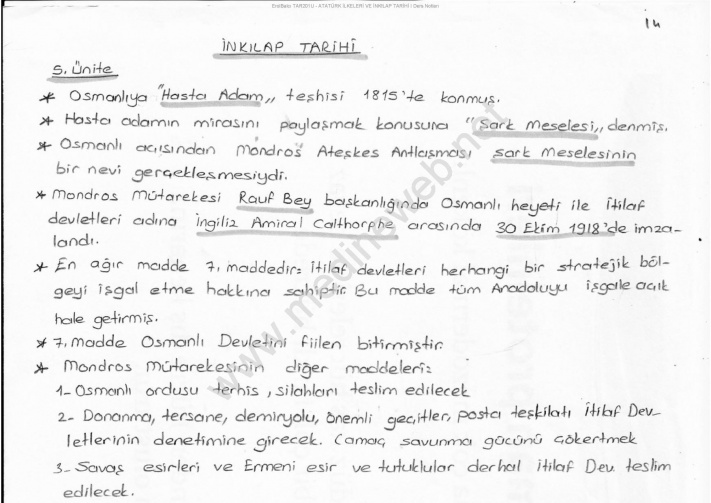 EndBeko TAR201U - ATATÜRK İLKELERİ VE İNKILAP TARİHİ I Ders Notları
14
İNKILAP TARİHİ
5. Ünite
* Osmanlıya "Hasta Adam,, teşhisi 1815'te konmuş.
* Hasta adamın mirasını paylaşmak konusuna "Şark Meselesi,, denmiş.
* Osmanlı açısından Mondros Ateşkes Antlaşması şark Meselesinin
bir nevi gerçekleşmesiydi.
* Mondros Mütarekesi Rauf Bey başkanlığında Osmanlı heyeti ile İtilaf
devletleri adına İngiliz Amiral Calthorphe arasında 30 Ekim 1918'de imza-
landı.
* En ağır madde 7. maddedir: İtilaf devletleri herhangi bir stratejik böl-
geyi işgal etme hakkına sahiptir. Bu madde tüm Anadoluyu işgale açık
hale getirmiş.
* 7. Madde Osmanlı Devletini fiilen bitirmiştir.
* Mondros Mütarekesinin diğer maddeleri:
1- Osmanlı ordusu terhis, silahları teslim edilecek
2- Donanma, tersane, demiryolu, önemli geçitler, posta teşkilatı İtilaf Dev-
letlerinin denetimine girecek. (amaç, savunma gücünü çökertmek
3- Savaş esirleri ve Ermeni esir ve tutuklular derhal itilaf Dev. teslim
edilecek.
www.medineweb.net